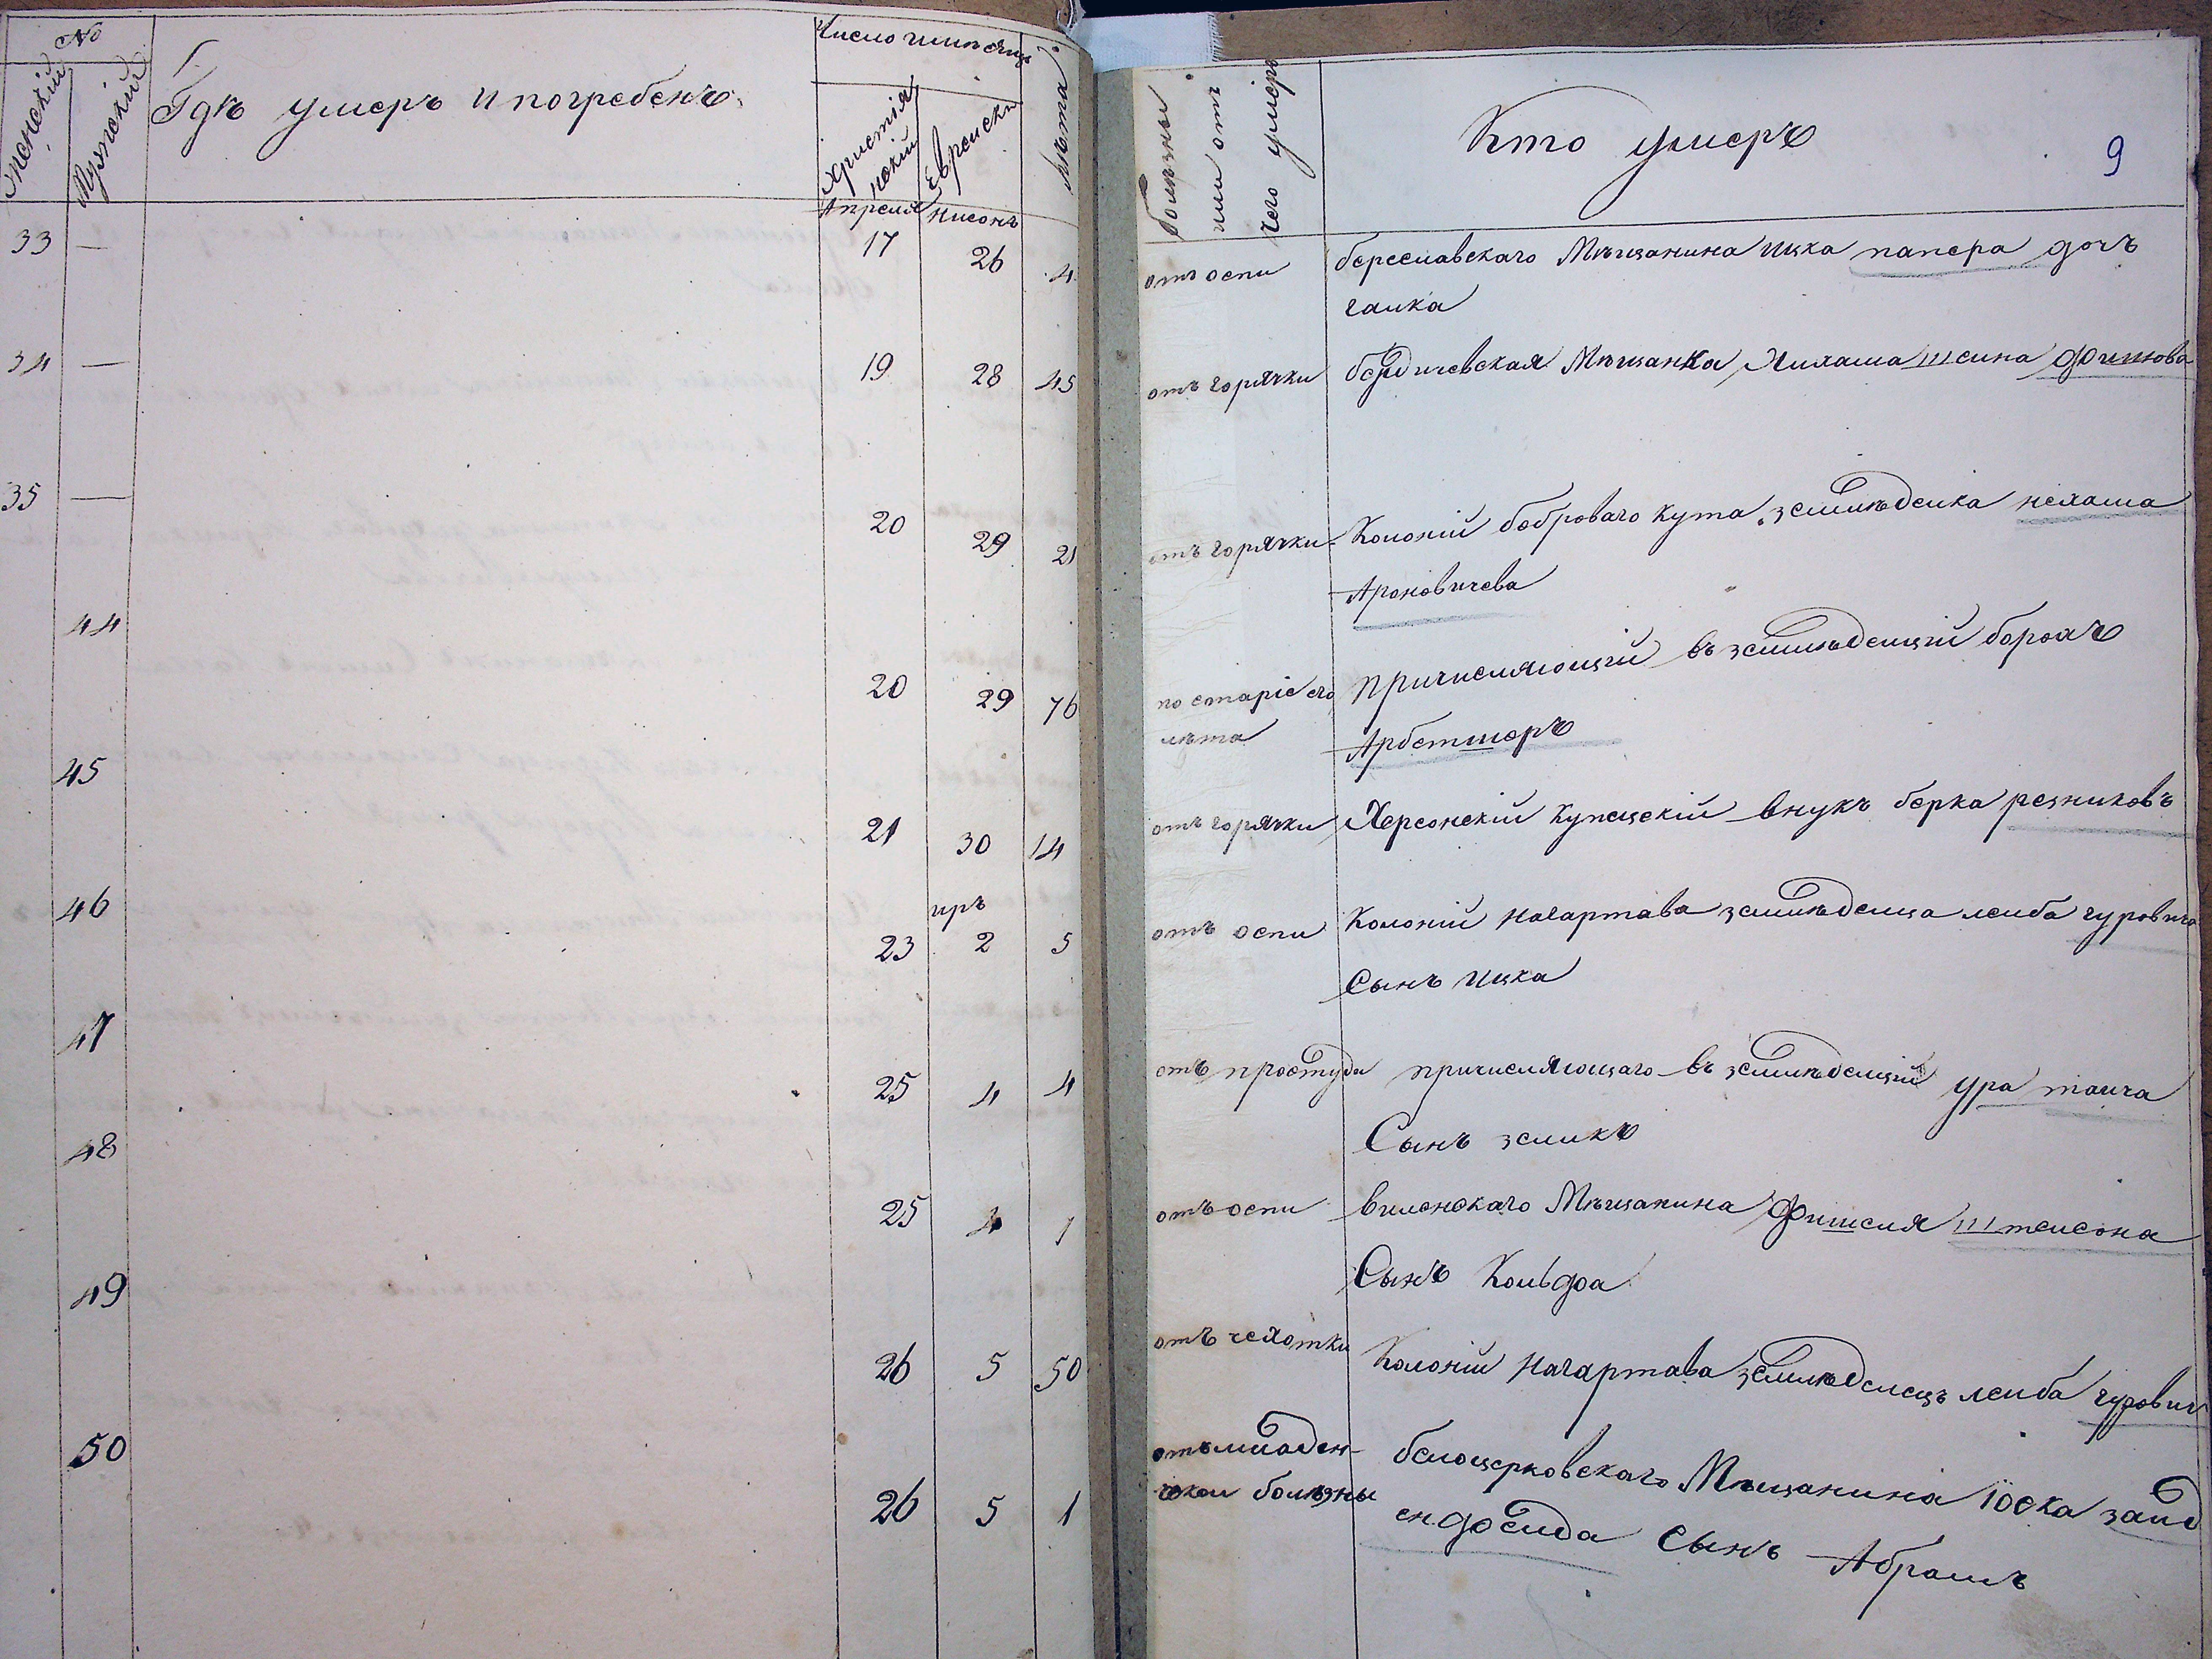 №
Женскій
Мужскій
Гдѣ умеръ и погребенъ
Число и мѣсяцъ
Христіянскій
Еврейски
Лѣта
Болѣзны или отъ чего умеръ
Кто умеръ
9
Апреля Нисонъ
33 — 17 26 4 отъ оспи береславскаго Мѣщанина Ицка папера дочъ
галка
34 — 19 28 45 отъ горячки бердичевская Мѣщанка Нихама шеина
35 — 20 29 21 отъ горячки Колоній боброваго кута земледелка нехама
Ароновичева
44 20 29 76 по старіе его причисляющій въ земледелцій борохъ
лѣта Арбетшеръ
45 21 30 14 отъ горячки Херсонскій купецкій внукъ берка резниковъ
иръ
46 23 2 5 отъ оспи Колоній нагартава земледелца леиба гуровича
Сынъ Ицка
47 25 4 4 отъ простуди причисляющаго въ земледелцій ура
Сынъ зеликъ
48 25 4 1 отъ оспи виленскаго Мѣщанина Фишеля штеисона
Сынъ
49 26 5 50 отъ чехотки Колоній нагартава земледелецъ леиба гурович
50 26 5 1 отъ младен- белоцерковскаго Мѣщанина Іоска заид
ской болѣзны енфелда Сынъ Абрамъ